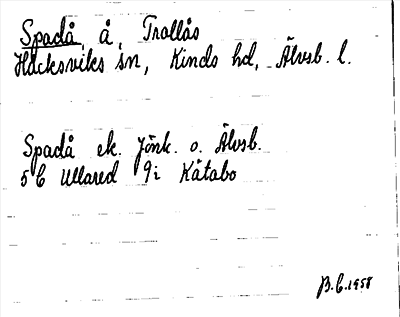 Spadå, å, Trollås
Håcksviks sn, Kinds hd, Älvsb. l.
Spadå ek. Jönk. o. Älvsb.
5C Ullared 9i Kåtabo
B.C. 1958